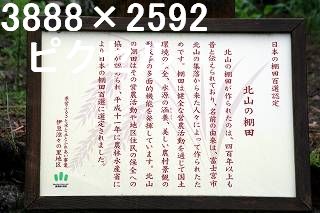 3888×2592
ピク
日本の棚田百選認定
北山の棚田
北山の棚田が作られたのは、四百年以上も
昔と伝えられており、名前の由来は、富士宮市
北山の集落から来た人々によって作られたた
めです。棚田は健全な営農活動を通じて国土
環境の保全、水源の涵養、美しい農村景観の
形成などの多面的機能を発揮しています。北山
の棚田はその営農活動や地区住民の保全への
協力が認められ、平成十一年に農林水産省に
より日本の棚田百選に選定されました。
伊豆凉々の里地区